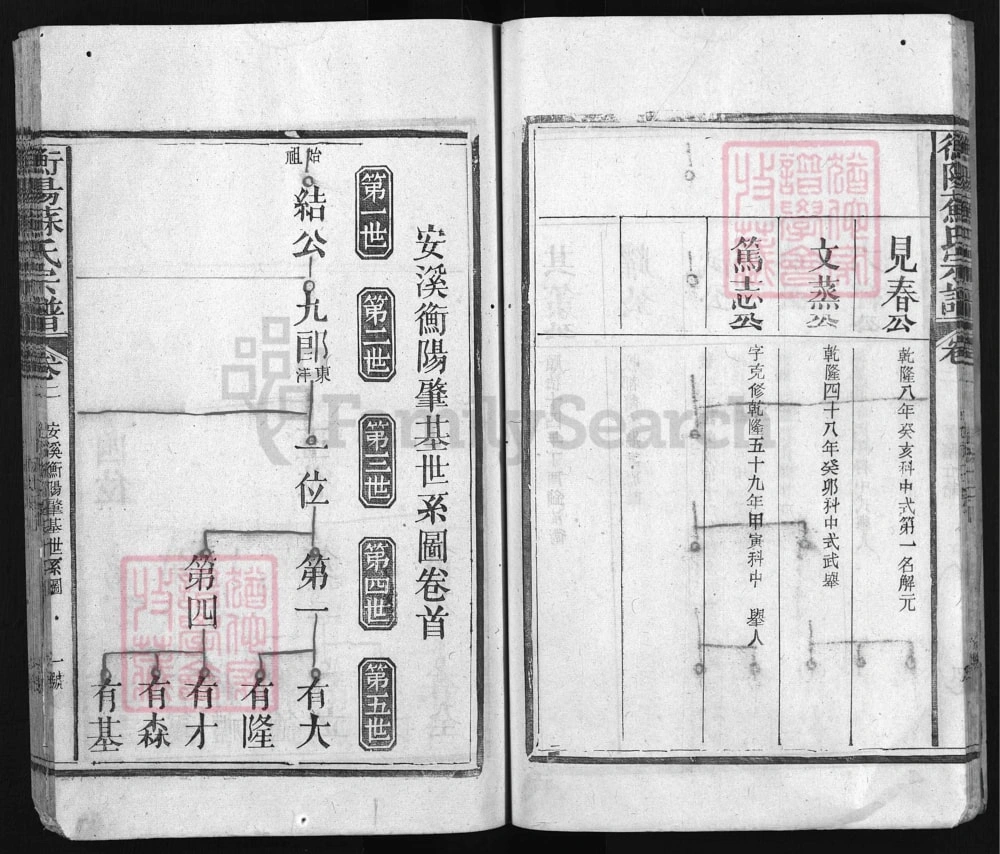 衡陽蘇氏宗譜
見春公
乾隆八年癸亥科中式第一名解元
文蒸公
乾隆四十八年癸卯科中式武舉
篤志公
字克修乾隆五十九年甲寅科中 舉人
安溪衡陽肇基世系圖卷首
第一世
第二世
第三世
第四世
第五世
始祖
結公
九郎
東洋
一位
第一
第四
有大
有隆
有才
有森
有基
衡陽蘇氏宗譜
卷一
安溪衡陽肇基世系圖
一號
FamilySearch